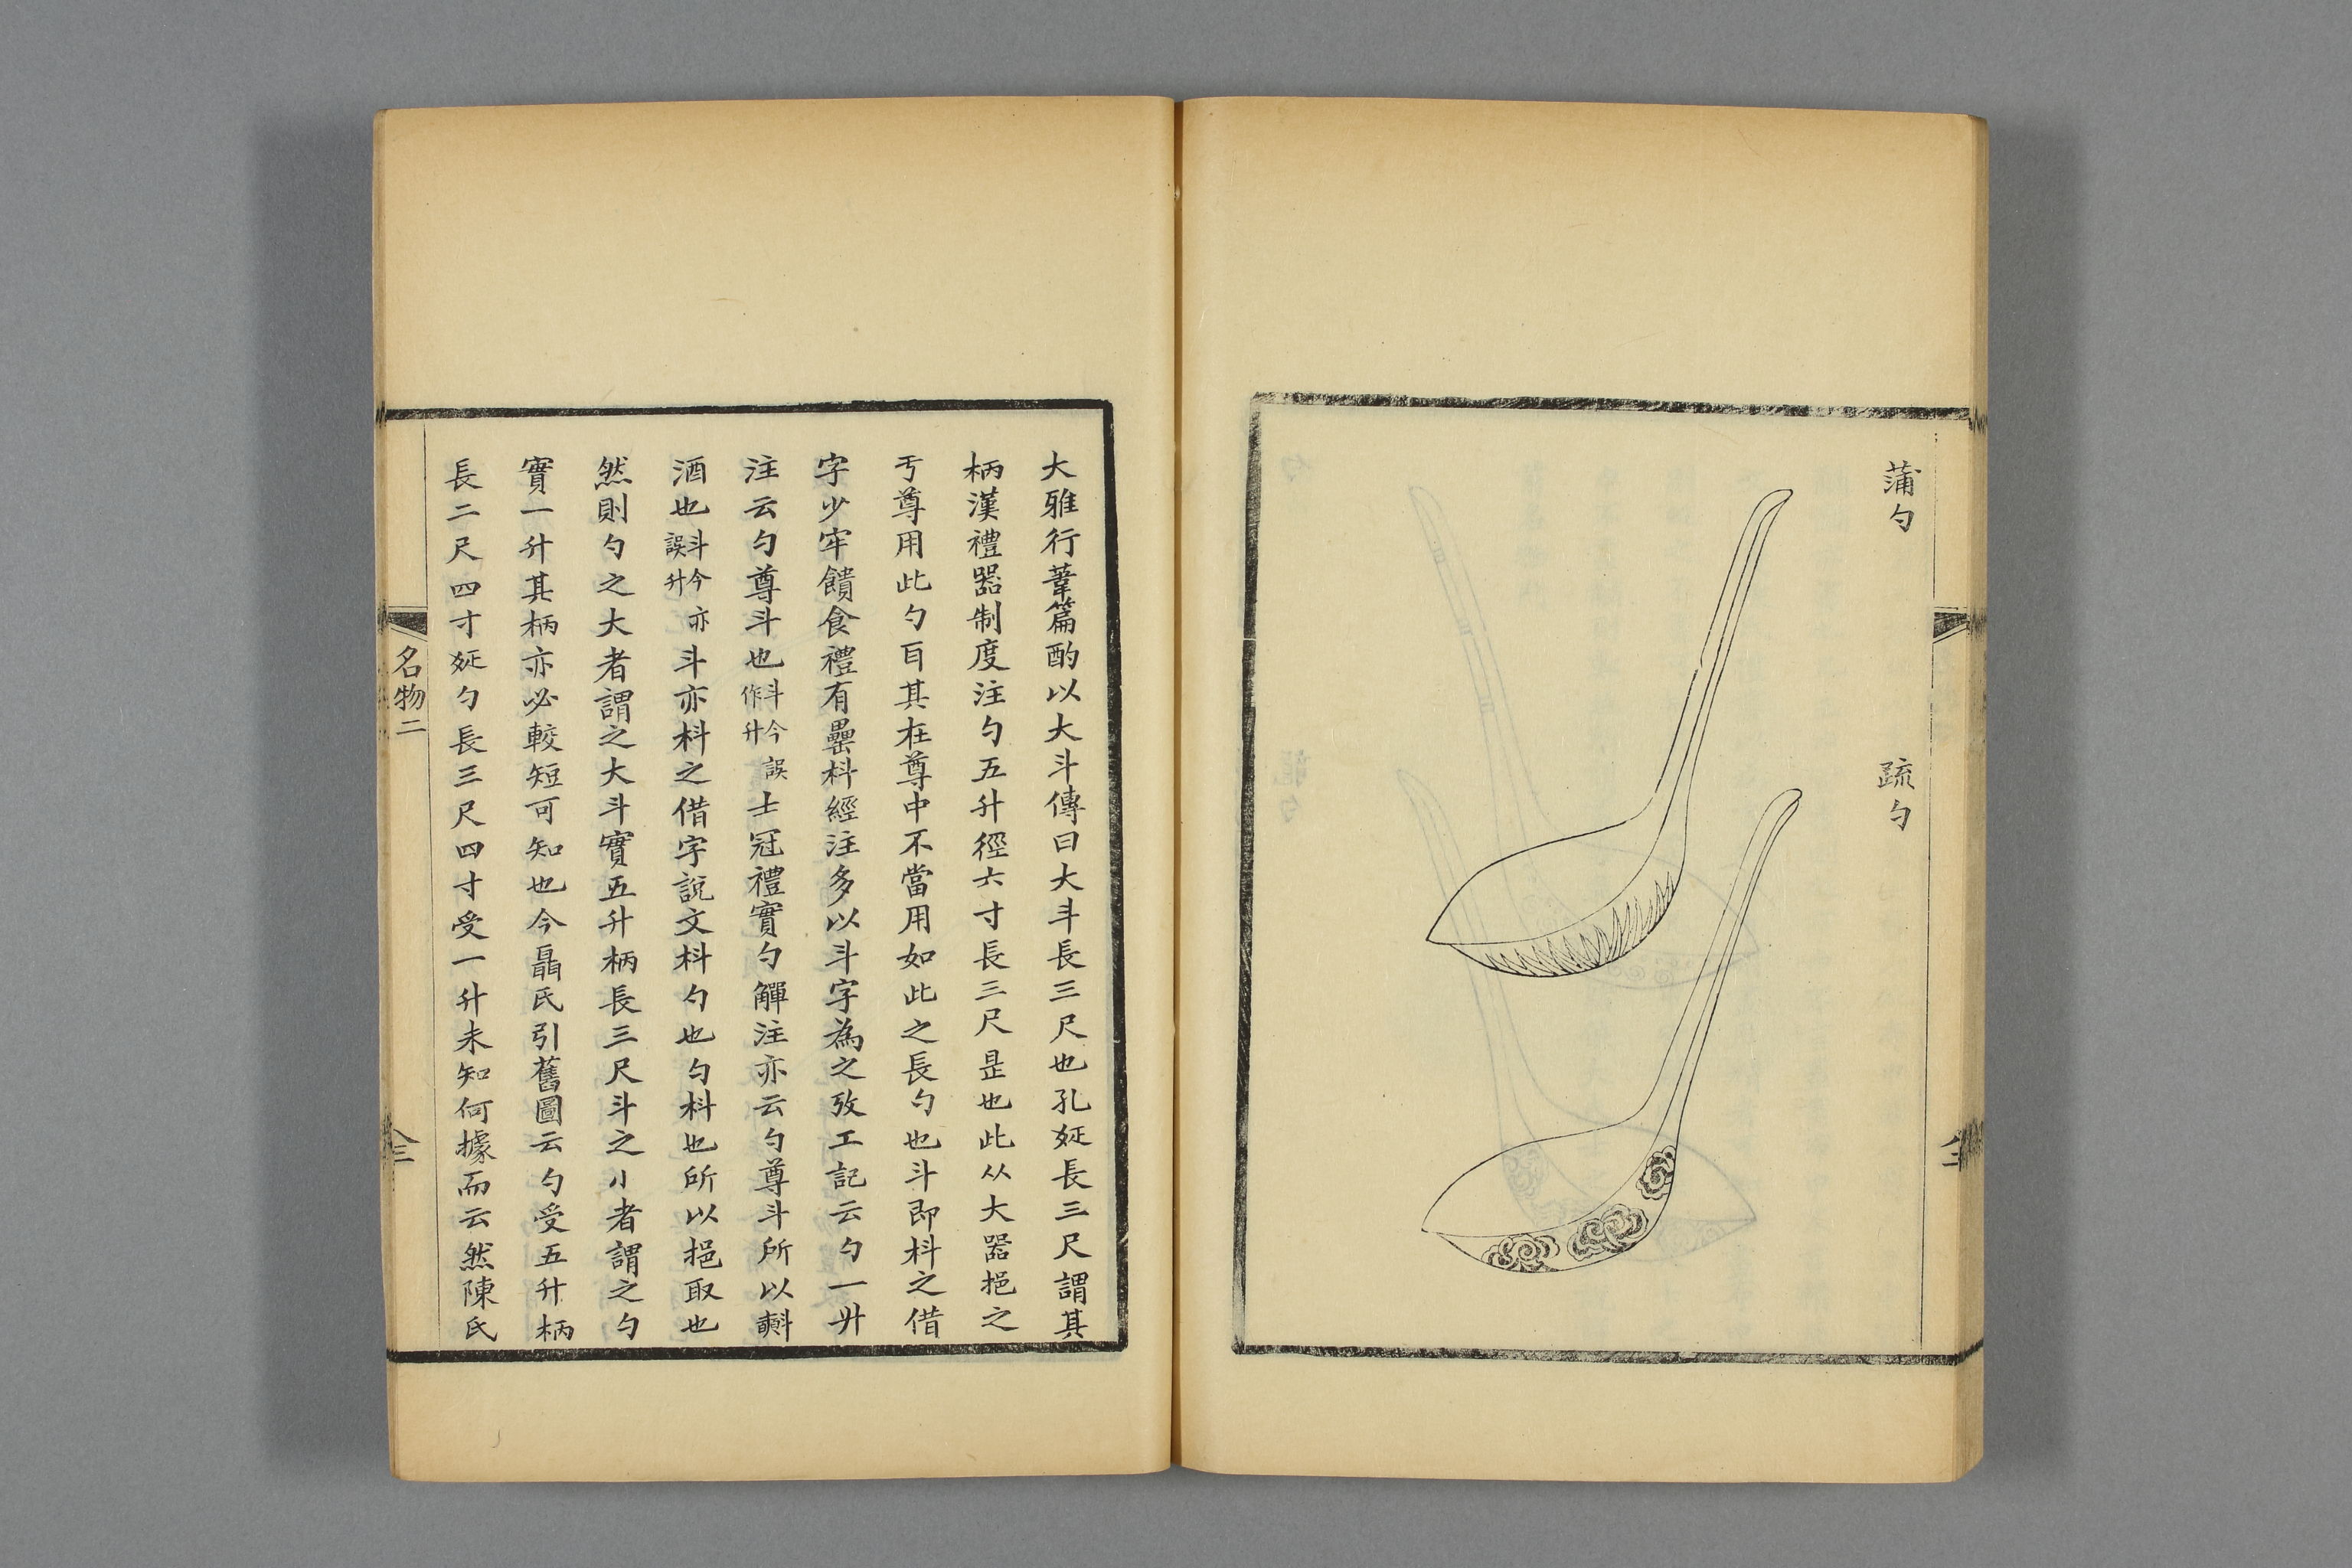 蒲勺
疏勺
大雅行葦篇酌以大斗傳曰大斗長三尺也孔疏長三尺謂其
柄漢禮器制度注勺五升徑六寸長三尺是也此从大器挹之
于尊用此勺𦣹其在尊中不當用如此之長勺也斗即枓之借
字少牢饋食禮有罍枓經注多以斗字為之攷工記云勺一升
注云勺尊斗也斗今誤作升士冠禮實勺觶注亦云勺尊斗所以㪺
酒也斗今亦誤升斗亦枓之借字說文枓勺也勺枓也所以挹取也
然則勺之大者謂之大斗實五升柄長三尺斗之小者謂之勺
實一升其柄亦必較短可知也今聶氏引舊圖云勺受五升柄
長二尺四寸疏勺長三尺四寸受一升未知何據而云然陳氏
名物二